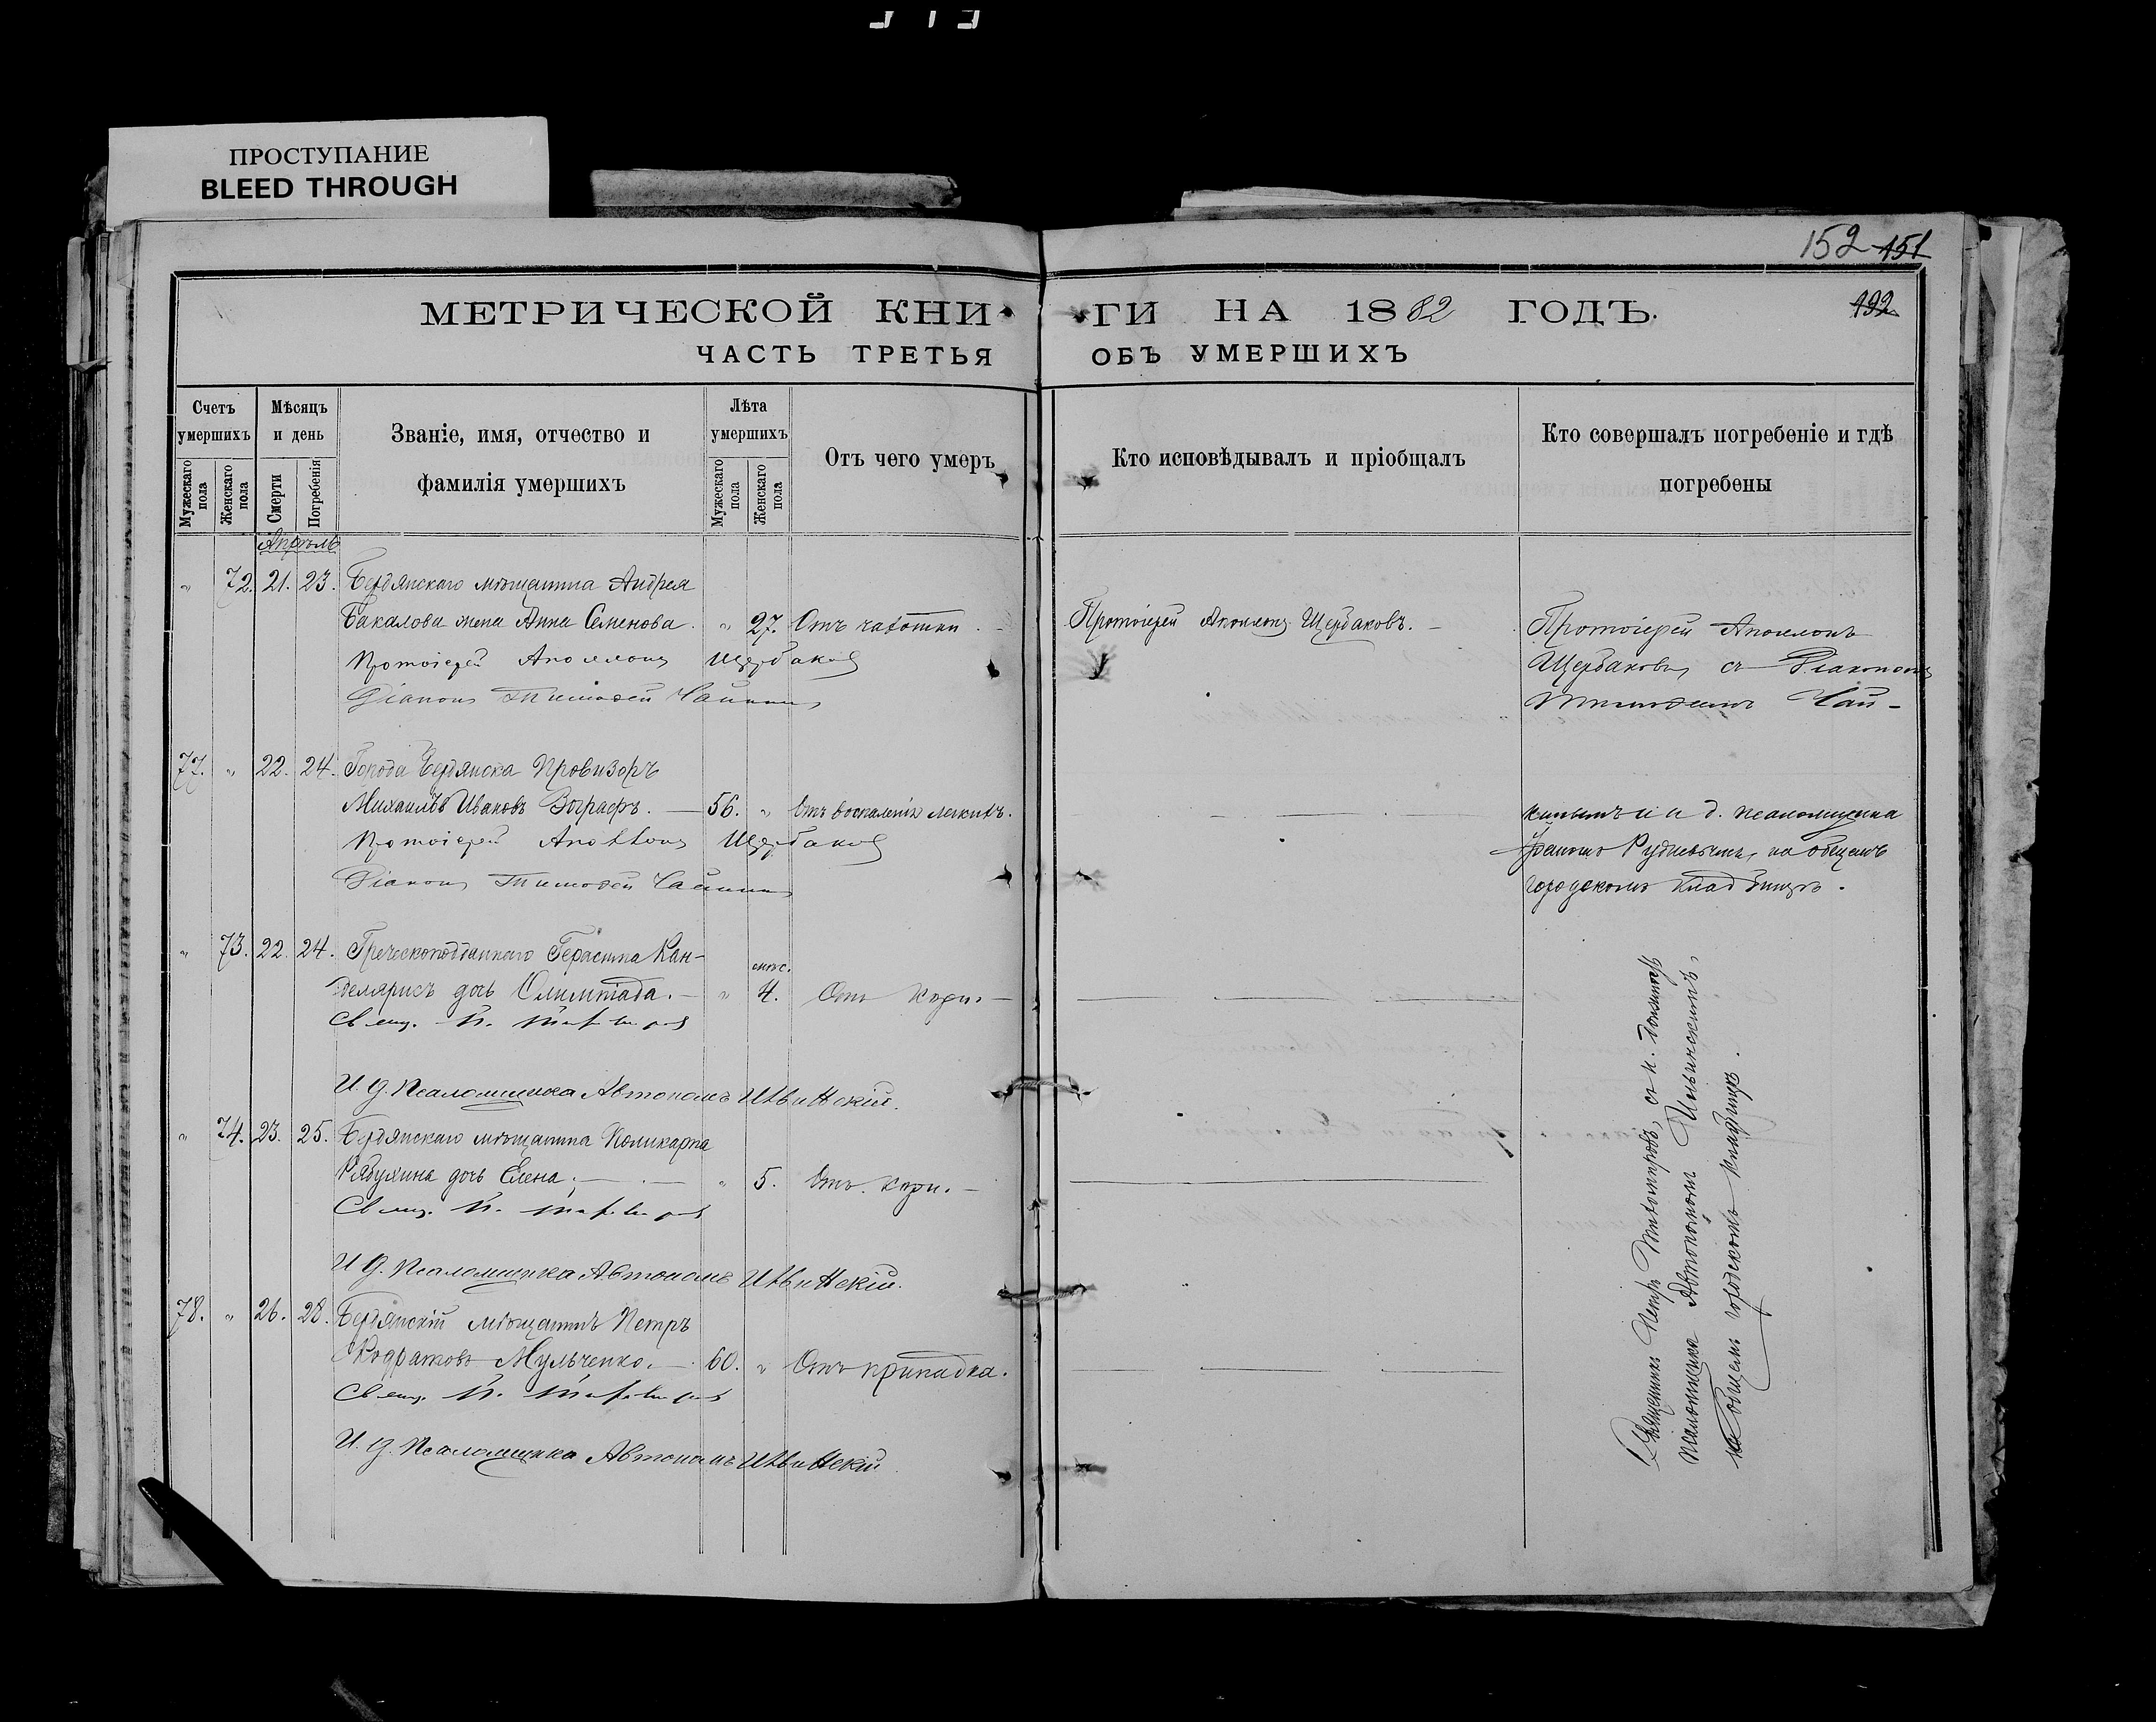 ПРОСТУПАНИЕ
BLEED THROUGH
152 151
МЕТРИЧЕСКОЙ КНИ
ГИ НА 1882 ГОДЪ.
192
ЧАСТЬ ТРЕТЬЯ
ОБЪ УМЕРШИХЪ
Счетъ умершихъ
Мужескаго пола
Женскаго пола
Мѣсяцъ и день
Смерти
Погребенія
Званіе, имя, отчество и фамилія умершихъ
Лѣта умершихъ
Мужескаго пола
Женскаго пола
Отъ чего умеръ
Кто исповѣдывалъ и пріобщалъ
Кто совершалъ погребеніе и гдѣ погребены
Апрѣль
" 72. 21. 23. Бердянскаго мѣщанина Андрея
Бакалова жена Анна Семенова. " 27. Отъ чахотки.
Протоіерей Аполлонъ Щербаковъ
Діаконъ Тимофей Чайкинъ
Протоіерей Аполлонъ Щербаковъ.
Протоіерей Аполлонъ
Щербаковъ, съ Діакономъ
Тимофеемъ Чай-
77. " 22. 24. Города Бердянска Провизоръ
Михаилъ Ивановъ Зографъ. 56. " Отъ воспаленія легкихъ.
Протоіерей Аполлонъ Щербаковъ
Діаконъ Тимофей Чайкинъ
кинымъ и и д. псаломщика
Рудневымъ, на общемъ
городскомъ кладбищѣ.
" 73. 22. 24. Греческоподданнаго Герасима Кан-
делярисъ дочь Олимпіада. " 4. Отъ кори.
мѣс.
Свящ. П. Тихомировъ
И. д. Псаломщика Автономъ
" 74. 23. 25. Бердянскаго мѣщанина Поликарпа
Рябухина дочь Елена. " 5. Отъ кори.
Свящ. П. Тихомировъ
И. д. Псаломщика Автономъ
78. " 26. 28. Бердянскій мѣщанинъ Петръ
Кодратовъ Мульченко. 60. " Отъ припадка.
Свящ. П. Тихомировъ
И. д. Псаломщика Автономъ
Священникъ Петръ Тихомировъ, съ и. должность
псаломщика Автономомъ
на общемъ городскомъ кладбищѣ.